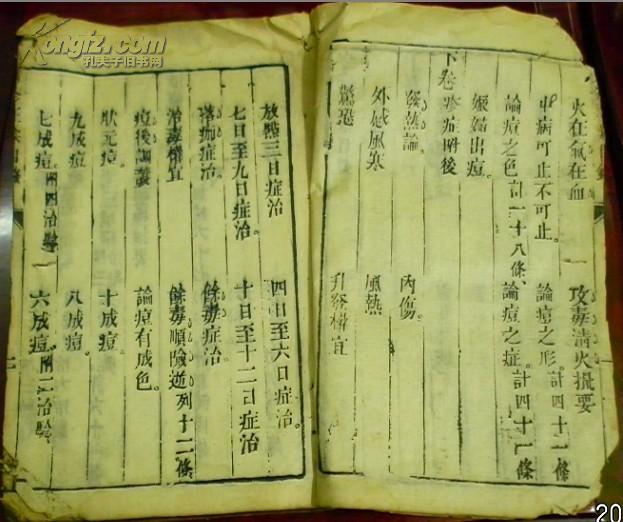 Kongfz.com
孔夫子旧书网
火在氣在血　攻毒清火提要
中病可止不可止。　論痘之形。計四十一條
論痘之色計一十八條、　論痘之症。計四十一條
姙婦出痘。
下卷　疹症附後
發熱論。　內傷。
外感風寒　風熱
驚　　升發權宜
放點三日症治　四日至六日症治。
七日至九日症治。　十日至十二日症治
落痂症治。　餘毒症治。
治毒權宜　餘毒順險逆列十二條
痘後調養　論痘有成色。
狀元痘。　十成痘。
九成痘　八成痘。
七成痘。附四治驗　六成痘。附二治驗
20